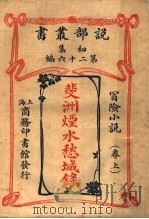 說部叢書
初集
第二十六編
冒險小說
(卷上)
斐洲煙水愁城錄
上海商務印書館發行